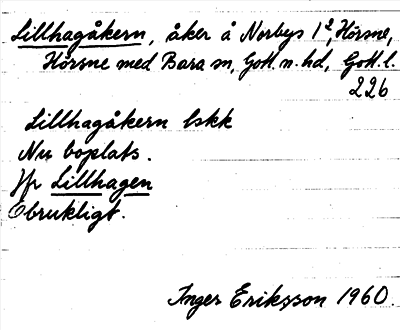 Lillhagåkern, åker å Norbys 1², Hörsne,
Hörsne med Bara sn, Gotl. n. hd, Gotl. l.
226
Lillhagåkern lskk
Nu boplats.
Jfr Lillhagen
Obrukligt.
Inger Eriksson 1960.